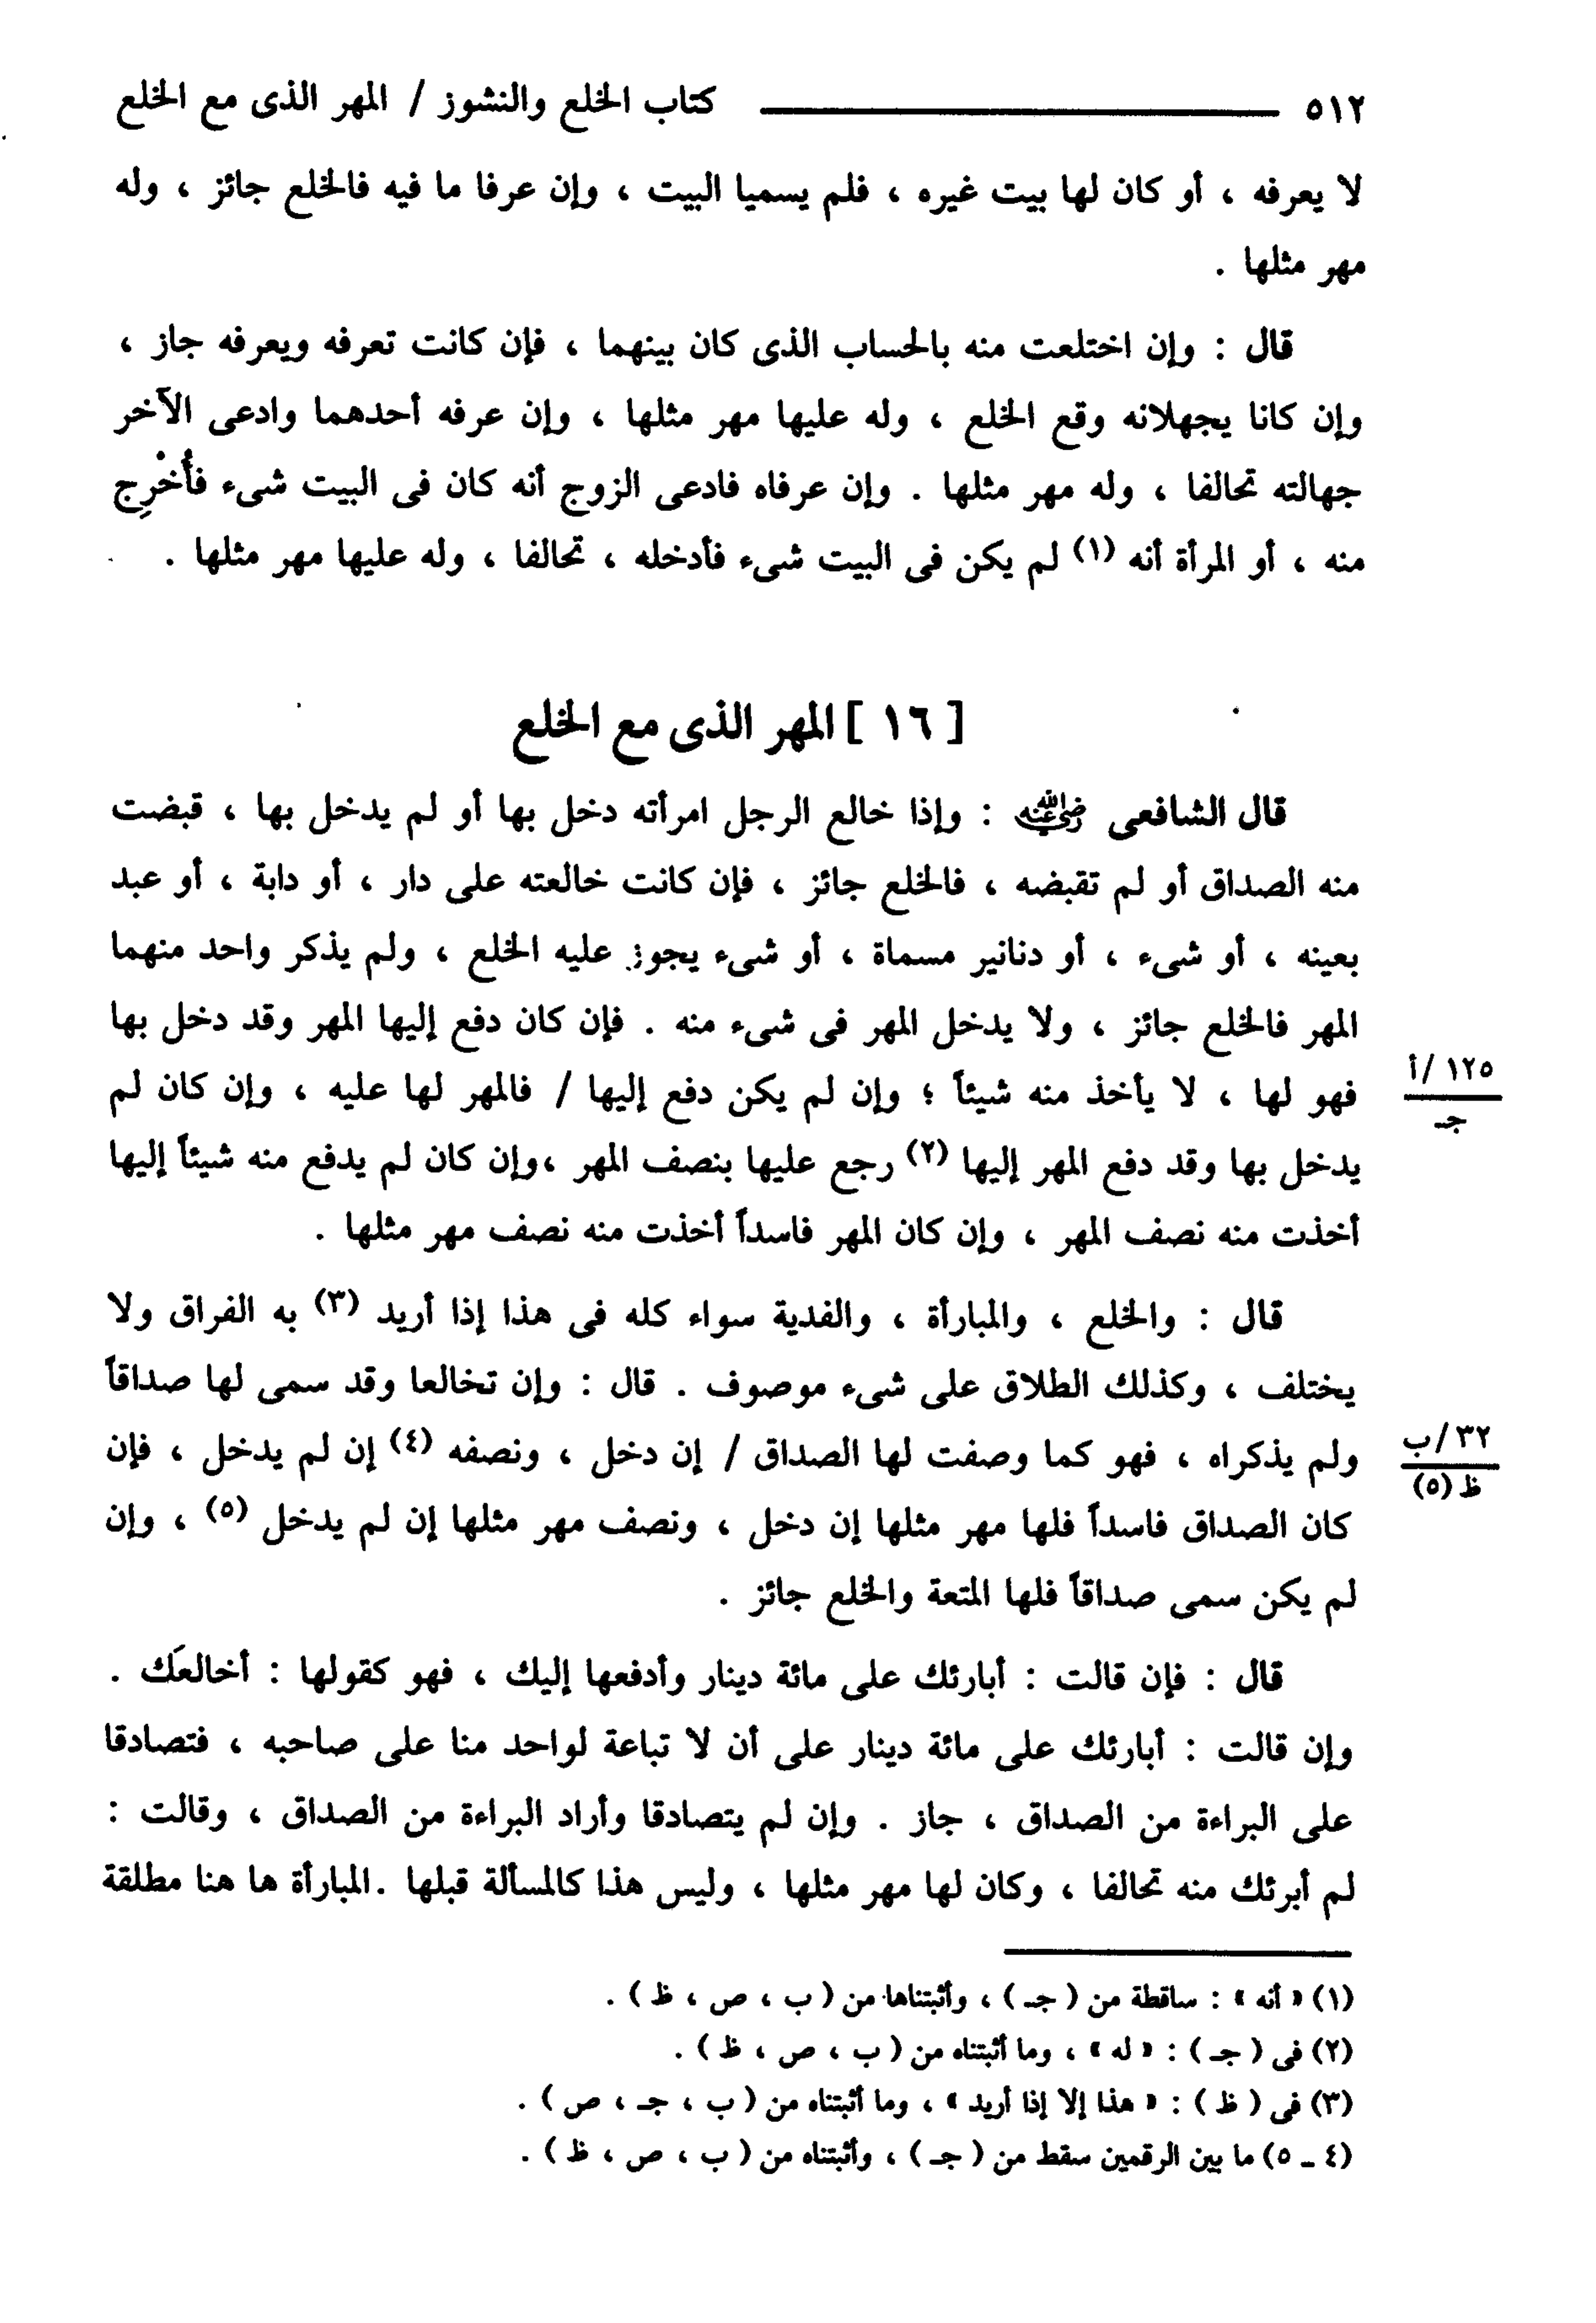 ٥١٢ ــــــــــــــــــــ كتاب الخلع والنشوز / المهر الذى مع الخلع
لا يعرفه ، أو كان لها بيت غيره ، فلم يسميا البيت ، وإن عرفا ما فيه فالخلع جائز ، وله
مهر مثلها .
قال : وإن اختلعت منه بالحساب الذى كان بينهما ، فإن كانت تعرفه ويعرفه جاز ،
وإن كانا يجهلانه وقع الخلع ، وله عليها مهر مثلها ، وإن عرفه أحدهما وادعى الآخر
جهالته تحالفا ، وله مهر مثلها . وإن عرفاه فادعى الزوج أنه كان فى البيت شىء فأُخْرِج
منه ، أو المرأة أنه (١) لم يكن فى البيت شىء فأدخله ، تحالفا ، وله عليها مهر مثلها .
[ ١٦ ] المهر الذى مع الخلع
قال الشافعى رضي الله عنه : وإذا خالع الرجل امرأته دخل بها أو لم يدخل بها ، قبضت
منه الصداق أو لم تقبضه ، فالخلع جائز ، فإن كانت خالعته على دار ، أو دابة ، أو عبد
بعينه ، أو شىء ، أو دنانير مسماة ، أو شىء يجوز عليه الخلع ، ولم يذكر واحد منهما
المهر فالخلع جائز ، ولا يدخل المهر فى شىء منه . فإن كان دفع إليها المهر وقد دخل بها
فهو لها ، لا يأخذ منه شيئاً ؛ وإن لم يكن دفع إليها / فالمهر لها عليه ، وإن كان لم
١٢٥ /أ
جـ
يدخل بها وقد دفع المهر إليها (٢) رجع عليها بنصف المهر ،وإن كان لم يدفع منه شيئاً إليها
أخذت منه نصف المهر ، وإن كان المهر فاسداً أخذت منه نصف مهر مثلها .
قال : والخلع ، والمبارأة ، والفدية سواء كله فى هذا إذا أريد (٣) به الفراق ولا
يختلف ، وكذلك الطلاق على شىء موصوف . قال : وإن تخالعا وقد سمى لها صداقاً
ولم يذكراه ، فهو كما وصفت لها الصداق / إن دخل ، ونصفه (٤) إن لم يدخل ، فإن
٣٢ /ب
ظ (٥)
كان الصداق فاسداً فلها مهر مثلها إن دخل ، ونصف مهر مثلها إن لم يدخل (٥) ، وإن
لم يكن سمى صداقاً فلها المتعة والخلع جائز .
قال : فإن قالت : أبارئك على مائة دينار وأدفعها إليك ، فهو كقولها : أخالعَك .
وإن قالت : أبارئك على مائة دينار على أن لا تباعة لواحد منا على صاحبه ، فتصادقا
على البراءة من الصداق ، جاز . وإن لم يتصادقا وأراد البراءة من الصداق ، وقالت :
لم أبرئك منه تحالفا ، وكان لها مهر مثلها ، وليس هذا كالمسألة قبلها .المبارأة ها هنا مطلقة
(١) « أنه » : ساقطة من ( جـ ) ، وأثبتناها من ( ب ، ص ، ظ ) .
(٢) فى ( جـ ) : « له » ، وما أثبتناه من ( ب ، ص ، ظ ) .
(٣) فى ( ظ ) : « هذا إلا إذا أريد » ، وما أثبتناه من ( ب ، جـ ، ص ) .
(٤ ـ ٥) ما بين الرقمين سقط من ( جـ ) ، وأثبتناه من ( ب ، ص ، ظ ) .